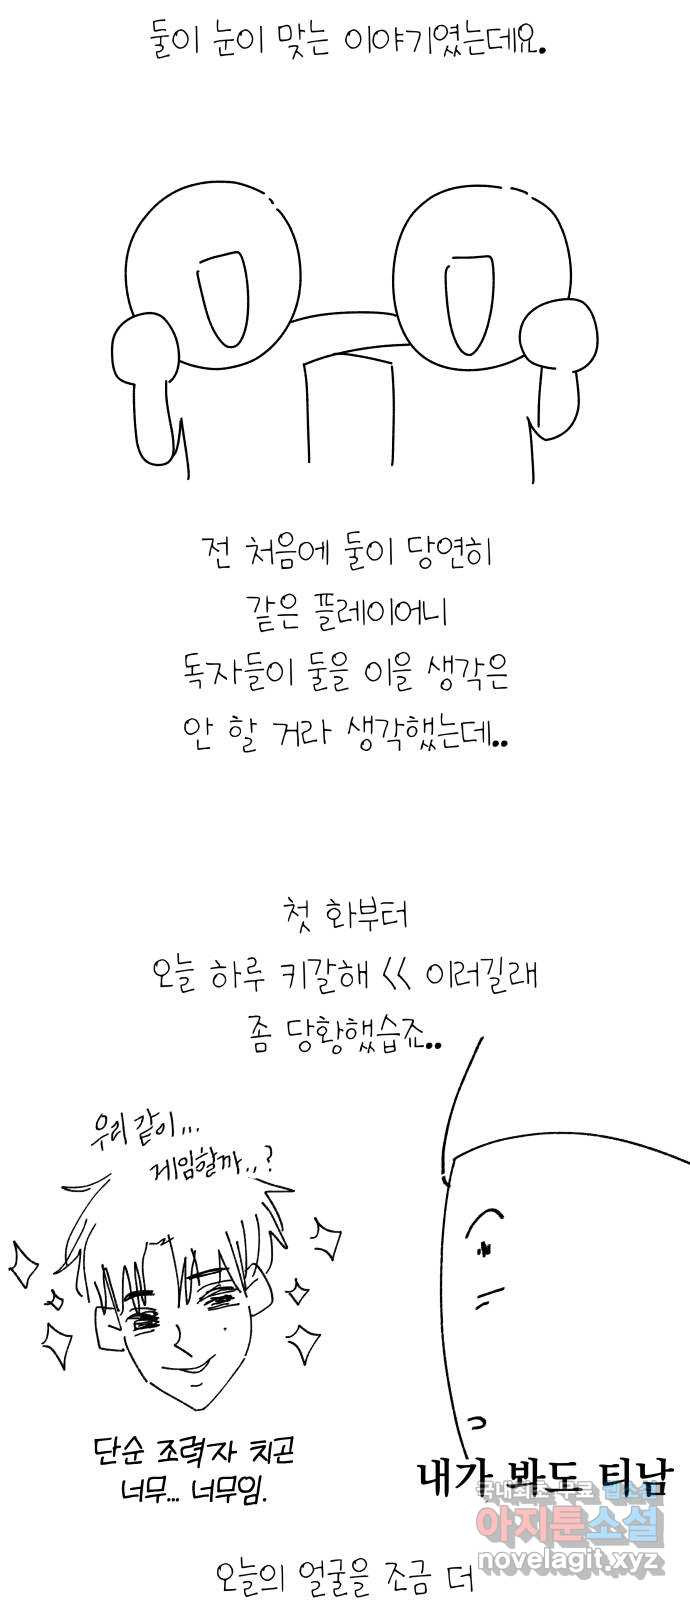 둘이 눈이 맞는 이야기였는데요.
전 처음에 둘이 당연히
같은 플레이어니
독자들이 둘을 이을 생각은
안 할 거라 생각했는데..
첫 화부터
오늘 하루 키갈해 << 이러길래
좀 당황했습죠..
우리 같이...
게임할까..?
단순 조력자 치곤
너무... 너무임.
내가 봐도 티남
국내최초 무료 웹소설
아지툰소설
novelagit.xyz
오늘의 얼굴을 조금 더